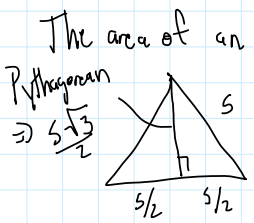 The area of an
Pythagorean
⇒ s√3/2
s
s/2 s/2